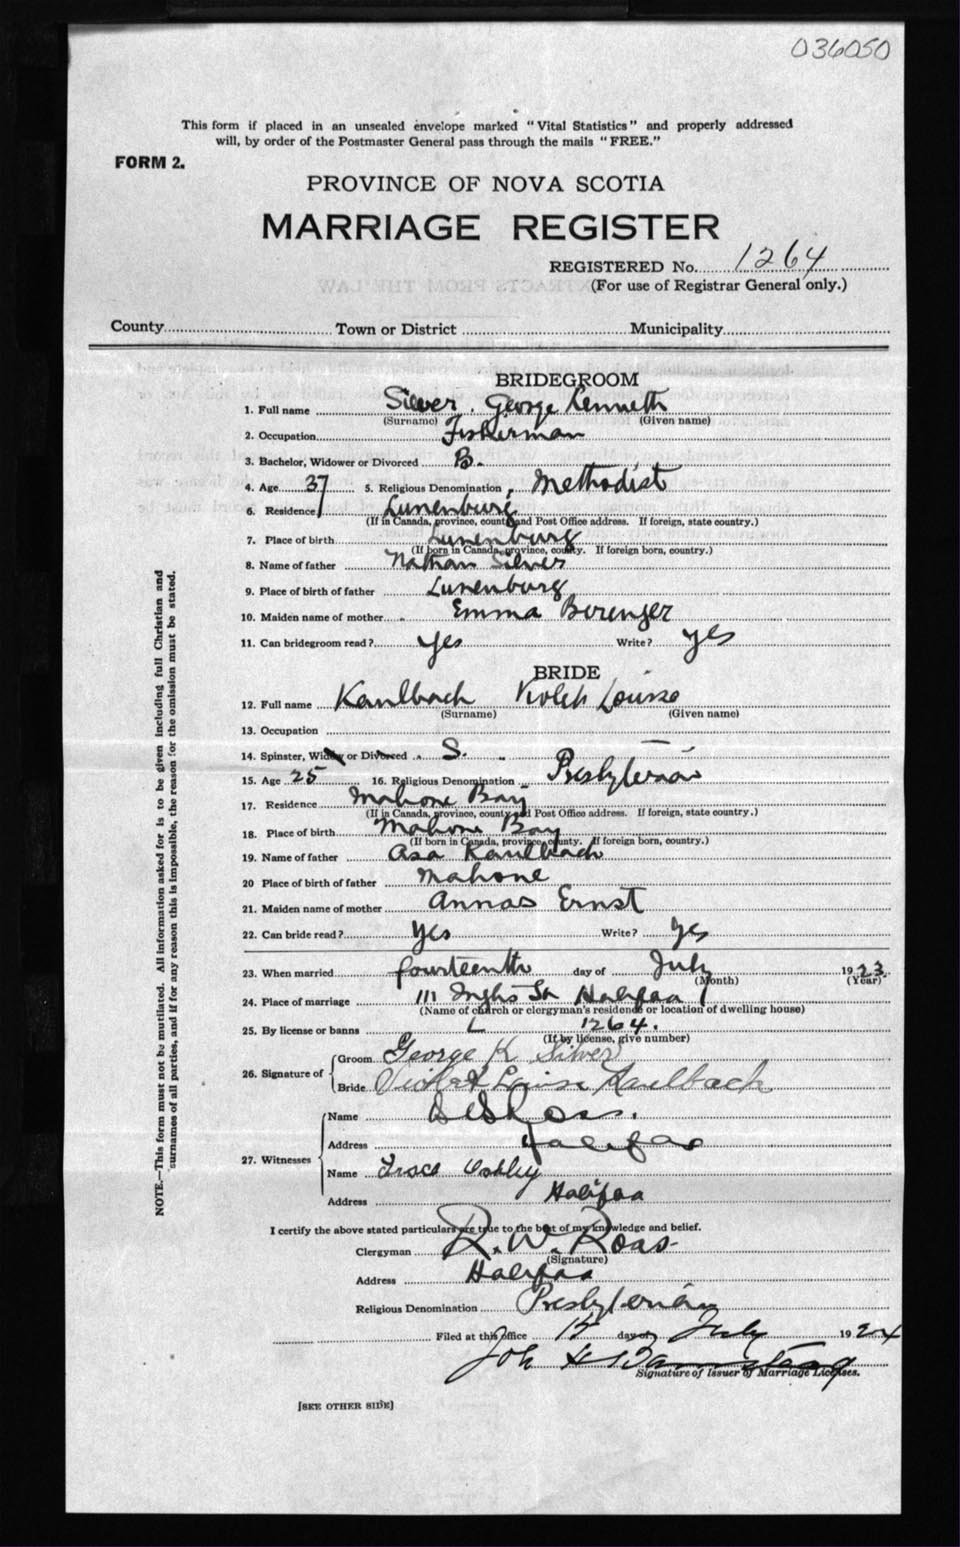 036050
This form if placed in an unsealed envelope marked "Vital Statistics" and properly addressed
will, by order of the Postmaster General pass through the mails "FREE."
FORM 2.
PROVINCE OF NOVA SCOTIA
MARRIAGE REGISTER
REGISTERED No. 1264
(For use of Registrar General only.)
County Town or District Municipality
BRIDEGROOM
1. Full name Silver, George Kenneth
(Surname) (Given name)
2. Occupation Fisherman
3. Bachelor, Widower or Divorced B.
4. Age 37 5. Religious Denomination Methodist
6. Residence Lunenburg
(If in Canada, province, county and Post Office address. If foreign, state country.)
7. Place of birth Lunenburg
(If born in Canada, province, county. If foreign born, country.)
8. Name of father Nathan Silver
9. Place of birth of father Lunenburg
10. Maiden name of mother Emma
11. Can bridegroom read? yes Write? yes
BRIDE
12. Full name Kaulbach Violet Louise
(Surname) (Given name)
13. Occupation —
14. Spinster, Widow or Divorced S.
15. Age 25 16. Religious Denomination Presbyterian
17. Residence Mahone Bay
(If in Canada, province, county and Post Office address. If foreign, state country.)
18. Place of birth Mahone Bay
(If born in Canada, province, county. If foreign born, country.)
19. Name of father Asa Kaulbach
20 Place of birth of father Mahone
21. Maiden name of mother Annas Ernst
22. Can bride read? yes Write? Yes
23. When married fourteenth day of July 1923
(Month) (Year)
24. Place of marriage 111 Halifax
(Name of church or clergyman's residence or location of dwelling house)
25. By license or banns L 1264.
(If by license, give number)
26. Signature of
Groom George K Silver
Bride Violet Louise Kaulbach
27. Witnesses
Name Ross.
Address Halifax
Name
Address Halifax
I certify the above stated particulars are true to the best of my knowledge and belief.
Clergyman R. W. Ross
(Signature)
Address Halifax
Religious Denomination Presbyterian
Filed at this office 15 day of July 1924
Signature of Issuer of Marriage Licenses.
[SEE OTHER SIDE]
NOTE.—This form must not be mutilated. All information asked for is to be given including full Christian and
surnames of all parties, and if for any reason this is impossible, the reason for the omission must be stated.